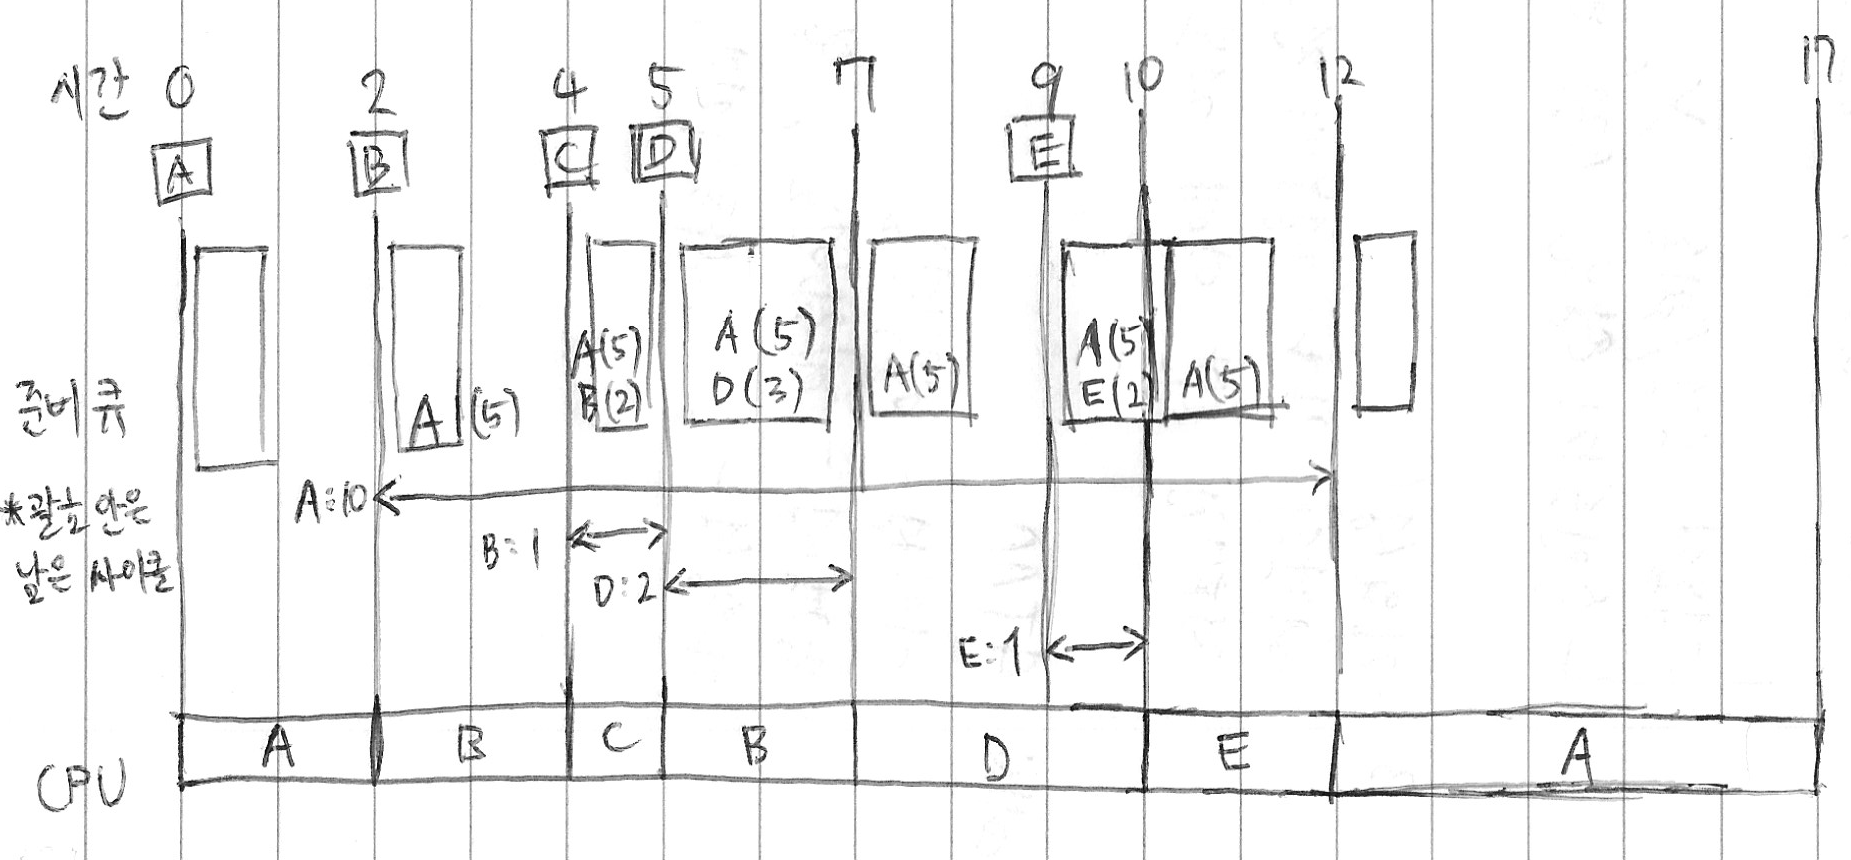 시간 0 2 4 5 7 9 10 12 17
A B C D E
준비 큐
A (5)
A(5)
B(2)
A (5)
D (3)
A(5)
A(5
E(2)
A(5)
*괄호 안은
남은 사이클
A:10
B:1
D:2
E:1
CPU A B C B D E A